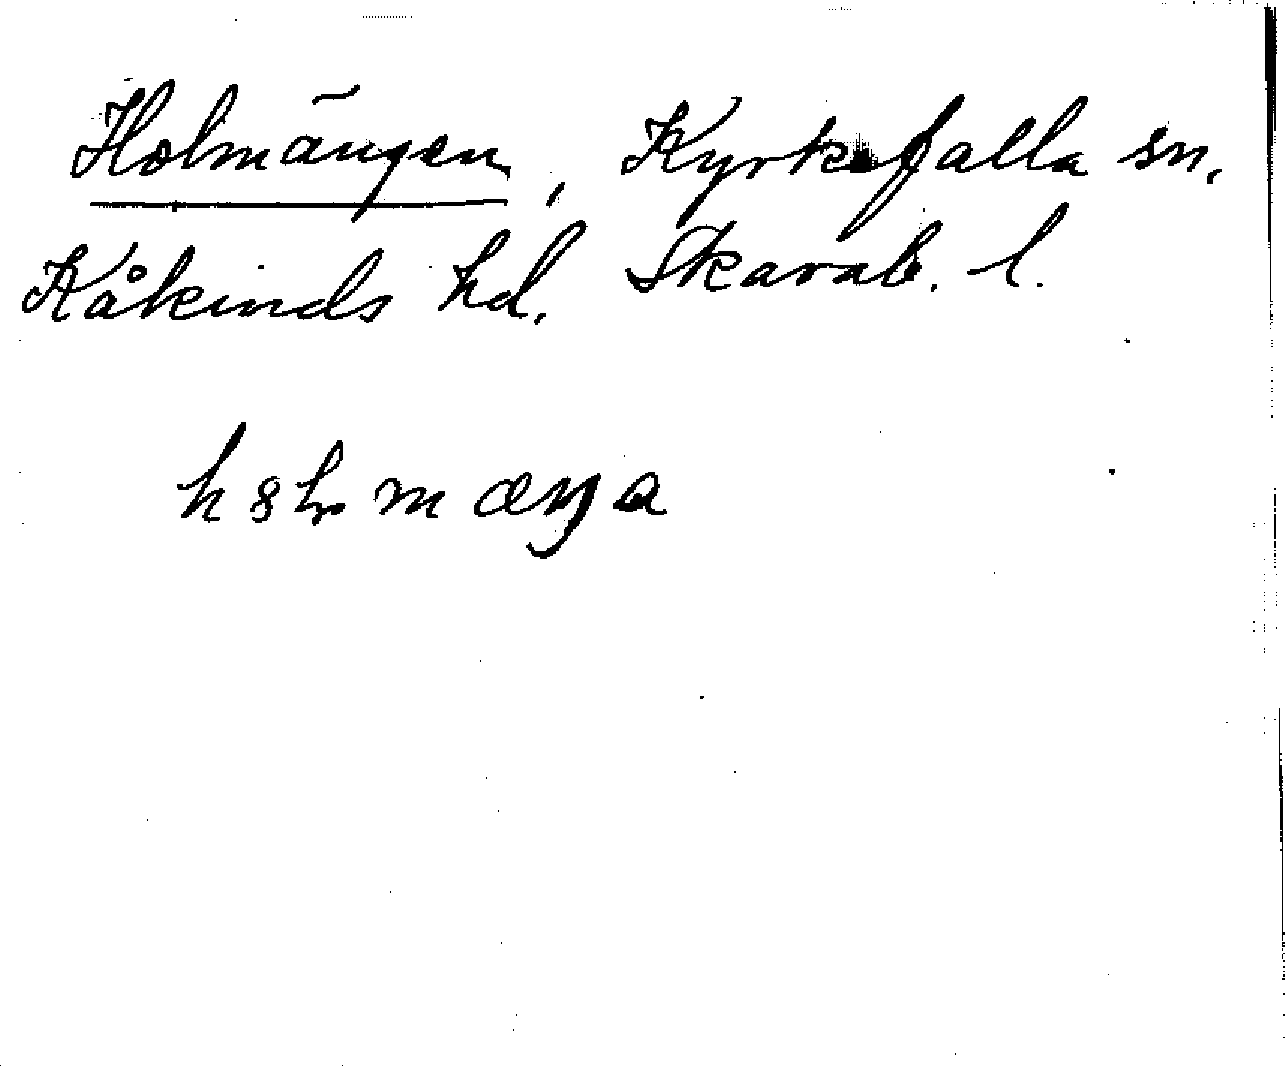 Holmängen, Kyrkefalla sn,
Kåkinds hd. Skarab. l.